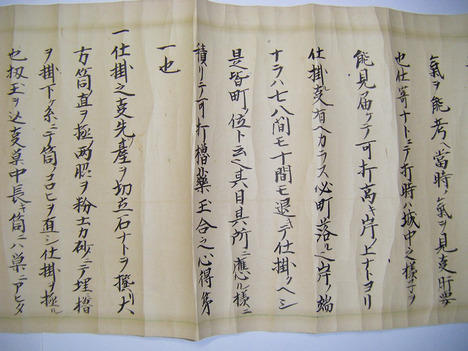 氣ヲ能考ヘ當時ノ氣ヲ見夏肝要
也仕寄ナトニテ打時ハ城中之様子ヲ
能見届ケテ可打高キ岸上ナトヨリ
仕掛夏有ヘカラス必町落ル之岸ノ端
ナラハ七八間モ十間モ退テ仕掛ヘシ
是皆町位ト云ヘ共目具所ニ應ル様ニ
積リテ可打櫓藥玉合之心得第
一也
一仕掛之夏先臺ヲ切立石ナトヲ撰人
方筒直ヲ極両股ヲ粉土カ砂ニテ埋措
ヲ掛下ケ糸ニテ筒ノコロヒヲ直シ仕掛ヲ極ル
也扨玉ヲ込夏巣中長キ筒ハ巣ニアヒタ